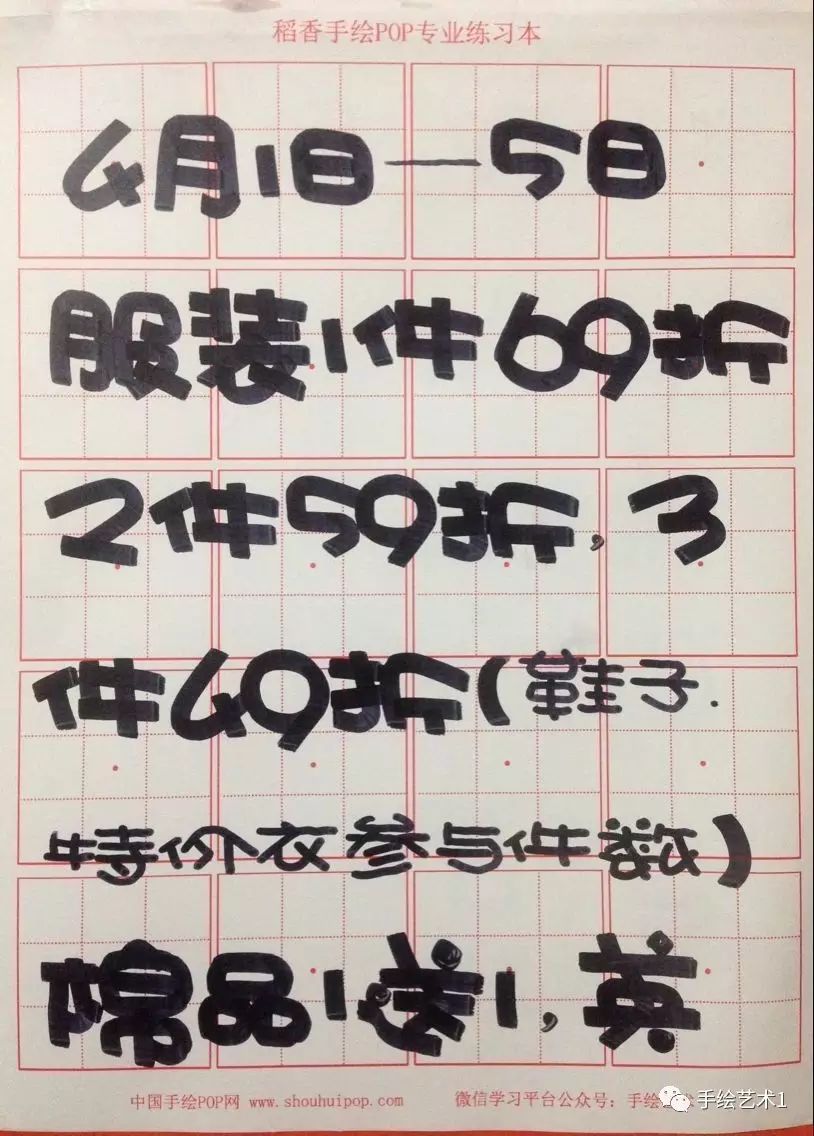 稻香手绘POP专业练习本
4月1日—5日
服装1件69折
2件59折,3
件49折(鞋子.
特价衣参与件数)
棉品1送1,英
中国手绘POP网 www.shouhuipop.com 微信学习平台公众号：手绘艺术
手绘艺术1